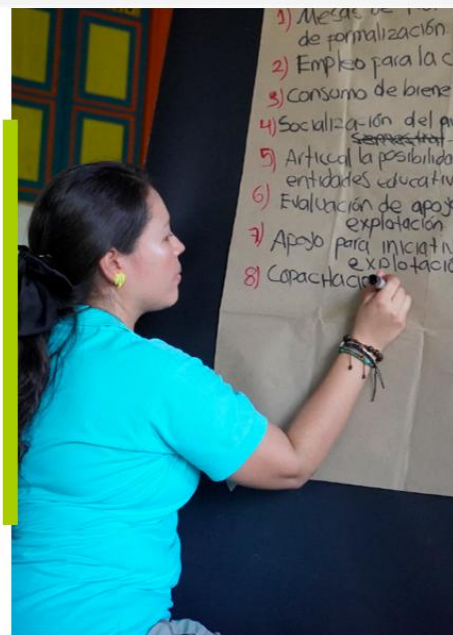 1) Mesas de
de formalización
2) Empleo para la c
3) Consumo de biene
4) Socialización del
semestral
5) Articul la posibilida
entidades educativ
6) Evaluación de apoy
explotación
7) Apoyo para iniciativ
explotació
8) Capacitacio